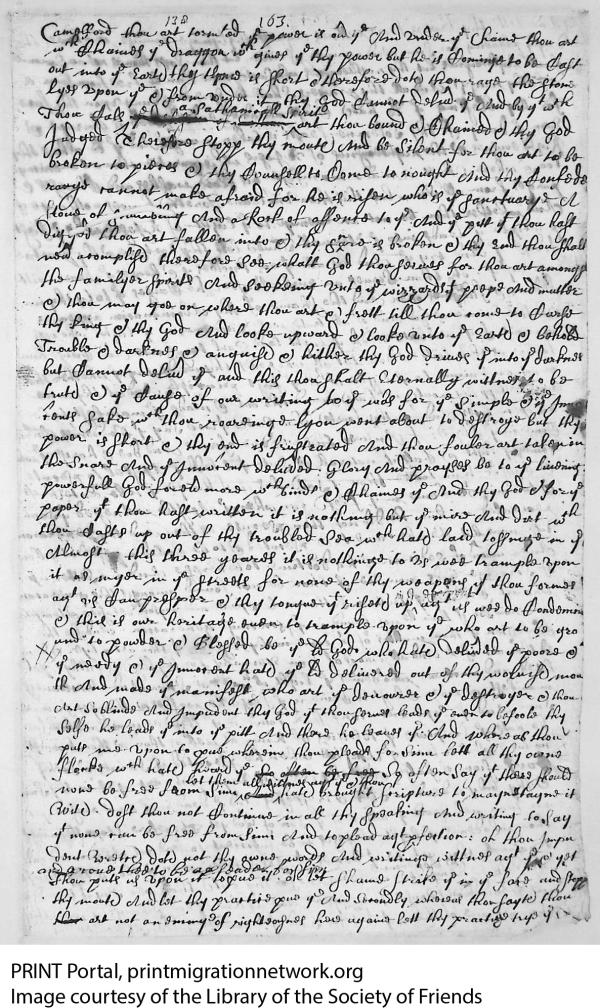 138 163.
Campsford thou art torm ed yt power is on ye And under ye Chaine thou art
wth Chaines ye draggon wch gives ye thy power but he is Cominge to be Cast
out into ye Earth thy tyme is short & therefore doth thou rage the stone
lyes upon ye & from under it thy God Cannot deliver ye And by yt wch
Thou Calls Sathanicall Spirit art thou bound & Chained & thy God
Judged Therefore stopp thy mouth And be silent for thou art to be
broken to pieces & thy Counsell to Come to nought And thy
rage cannot make afraid for he is risen who is ye sanctuarye A
stone of And a Rock of offence to ye And ye pitt yt thou hast
digged thou art fallen into & thy snare is broken & thy End thou shall
now acomplish therefore see whatt God thou serves for thou art amongst
the familyer spirits And seekeing unto ye wizzards yt peepe And mutter
& thou may goe on where thou art & frett till thou come to Curse
thy king & thy God And looke upward & looke unto ye Earth & behold
Trouble & darknes & anguish & hither thy God drives ye into ye darknes
but Cannot deliver ye and this thou shalt Eternally witnes to be
truth & ye Cause of our writing to ye was for ye simple & ye Inno
cents sake wch thou roareinge Lyon went about to destroye but thy
power is short & thy end is frustrated And thou fouler art taken in
the snare And ye Innocent delivered. Glory And prayses be to ye liveing
powerfull God for ever more wch binds & Chaines ye And thy God & for ye
paper yt thou hast written it is nothing but ye mire And dirt wch
thou Casts up out of thy troubled sea wch hath laid in ye
Almost this three yeares it is nothinge to us wee trample upon
it as myer in ye streets for none of thy weapons yt thou formes
agt us Can prosper & thy tongue yt riseth up agt us wee do Condemne
& this is our heritage even to trample upon ye who art to be gro
und to powder & Blessed be ye Ld God who hath delivered ye poore &
ye needy & ye Innocent hath ye Ld delivered out of thy wolvish mou
th And made ye manifest who art ye devourer & ye destroyer & thou
Art soe blinde And Impudent thy God yt thou serves leads ye even to befoole thy
selfe he leads ye into ye pitt And there he leaves ye. And where as thou
puts me upon to prove wherein thou pleads for sinn lett all thy owne
flocke wch hath heard ye so often so often say yt there should
none be free from sinn let them all witnes hath brought scripture to mayntayne it
Wilt. dost thou not Continue in all thy speaking And writing to say
yt none can be free from sinn And to plead agt pfection: oh thou Impu
dent Wretch doth not thy owne words And writings wittnes agt ye yet
Thou puts us upon it to prove it: oh let shame strike ye in ye face and stopp
thy mouth And let thy practice prove ye And secondly whereas thou sayth thou
art not an enimye of righteousnes here againe lett thy practice trye ye
PRINT Portal, printmigrationnetwork.org
Image courtesy of the Library of the Society of Friends